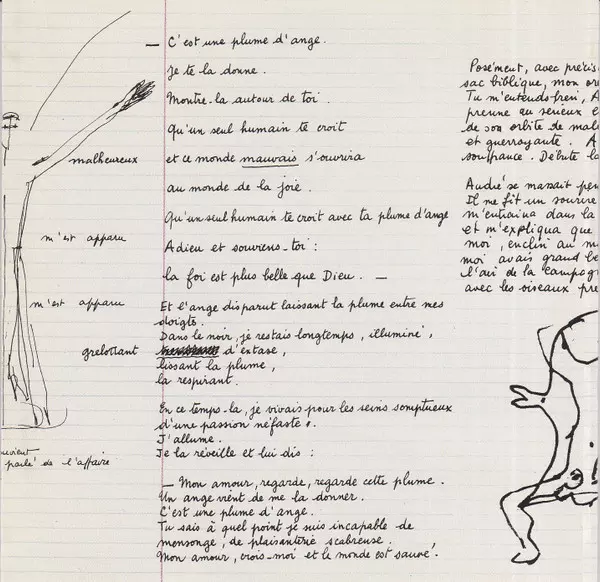 — C'est une plume d'ange.
Je te la donne.
Montre-la autour de toi.
Qu'un seul humain te croit
malheureux
et ce monde mauvais s'ouvrira
au monde de la joie.
Qu'un seul humain te croit avec ta plume d'ange
m'est apparu
Adieu et souviens-toi :
la foi est plus belle que Dieu. —
m'est apparu
Et l'ange disparut laissant la plume entre mes
doigts.
Dans le noir, je restais longtemps, illuminé,
grelottant
d'extase,
lissant la plume,
la respirant.
En ce temps-là, je vivais pour les seins somptueux
d'une passion néfaste.
J'allume.
Je la réveille et lui dis :
— Mon amour, regarde, regarde cette plume.
Un ange vient de me la donner.
C'est une plume d'ange.
Tu sais à quel point je suis incapable de
mensonge, de plaisanterie scabreuse.
Mon amour, crois-moi et le monde est sauvé.
parlé de l'affaire
Posément, avec
sac biblique, mon
Tu m'entends bien,
prenne au sérieux
de son orbite de
et guerroyante.
souffrance. Débute
André se massait
Il ne fit un sourire
m'entraîna dans la
et m'expliqua que
moi, enclin au
moi avais grand
l'ami de la
avec les oiseaux